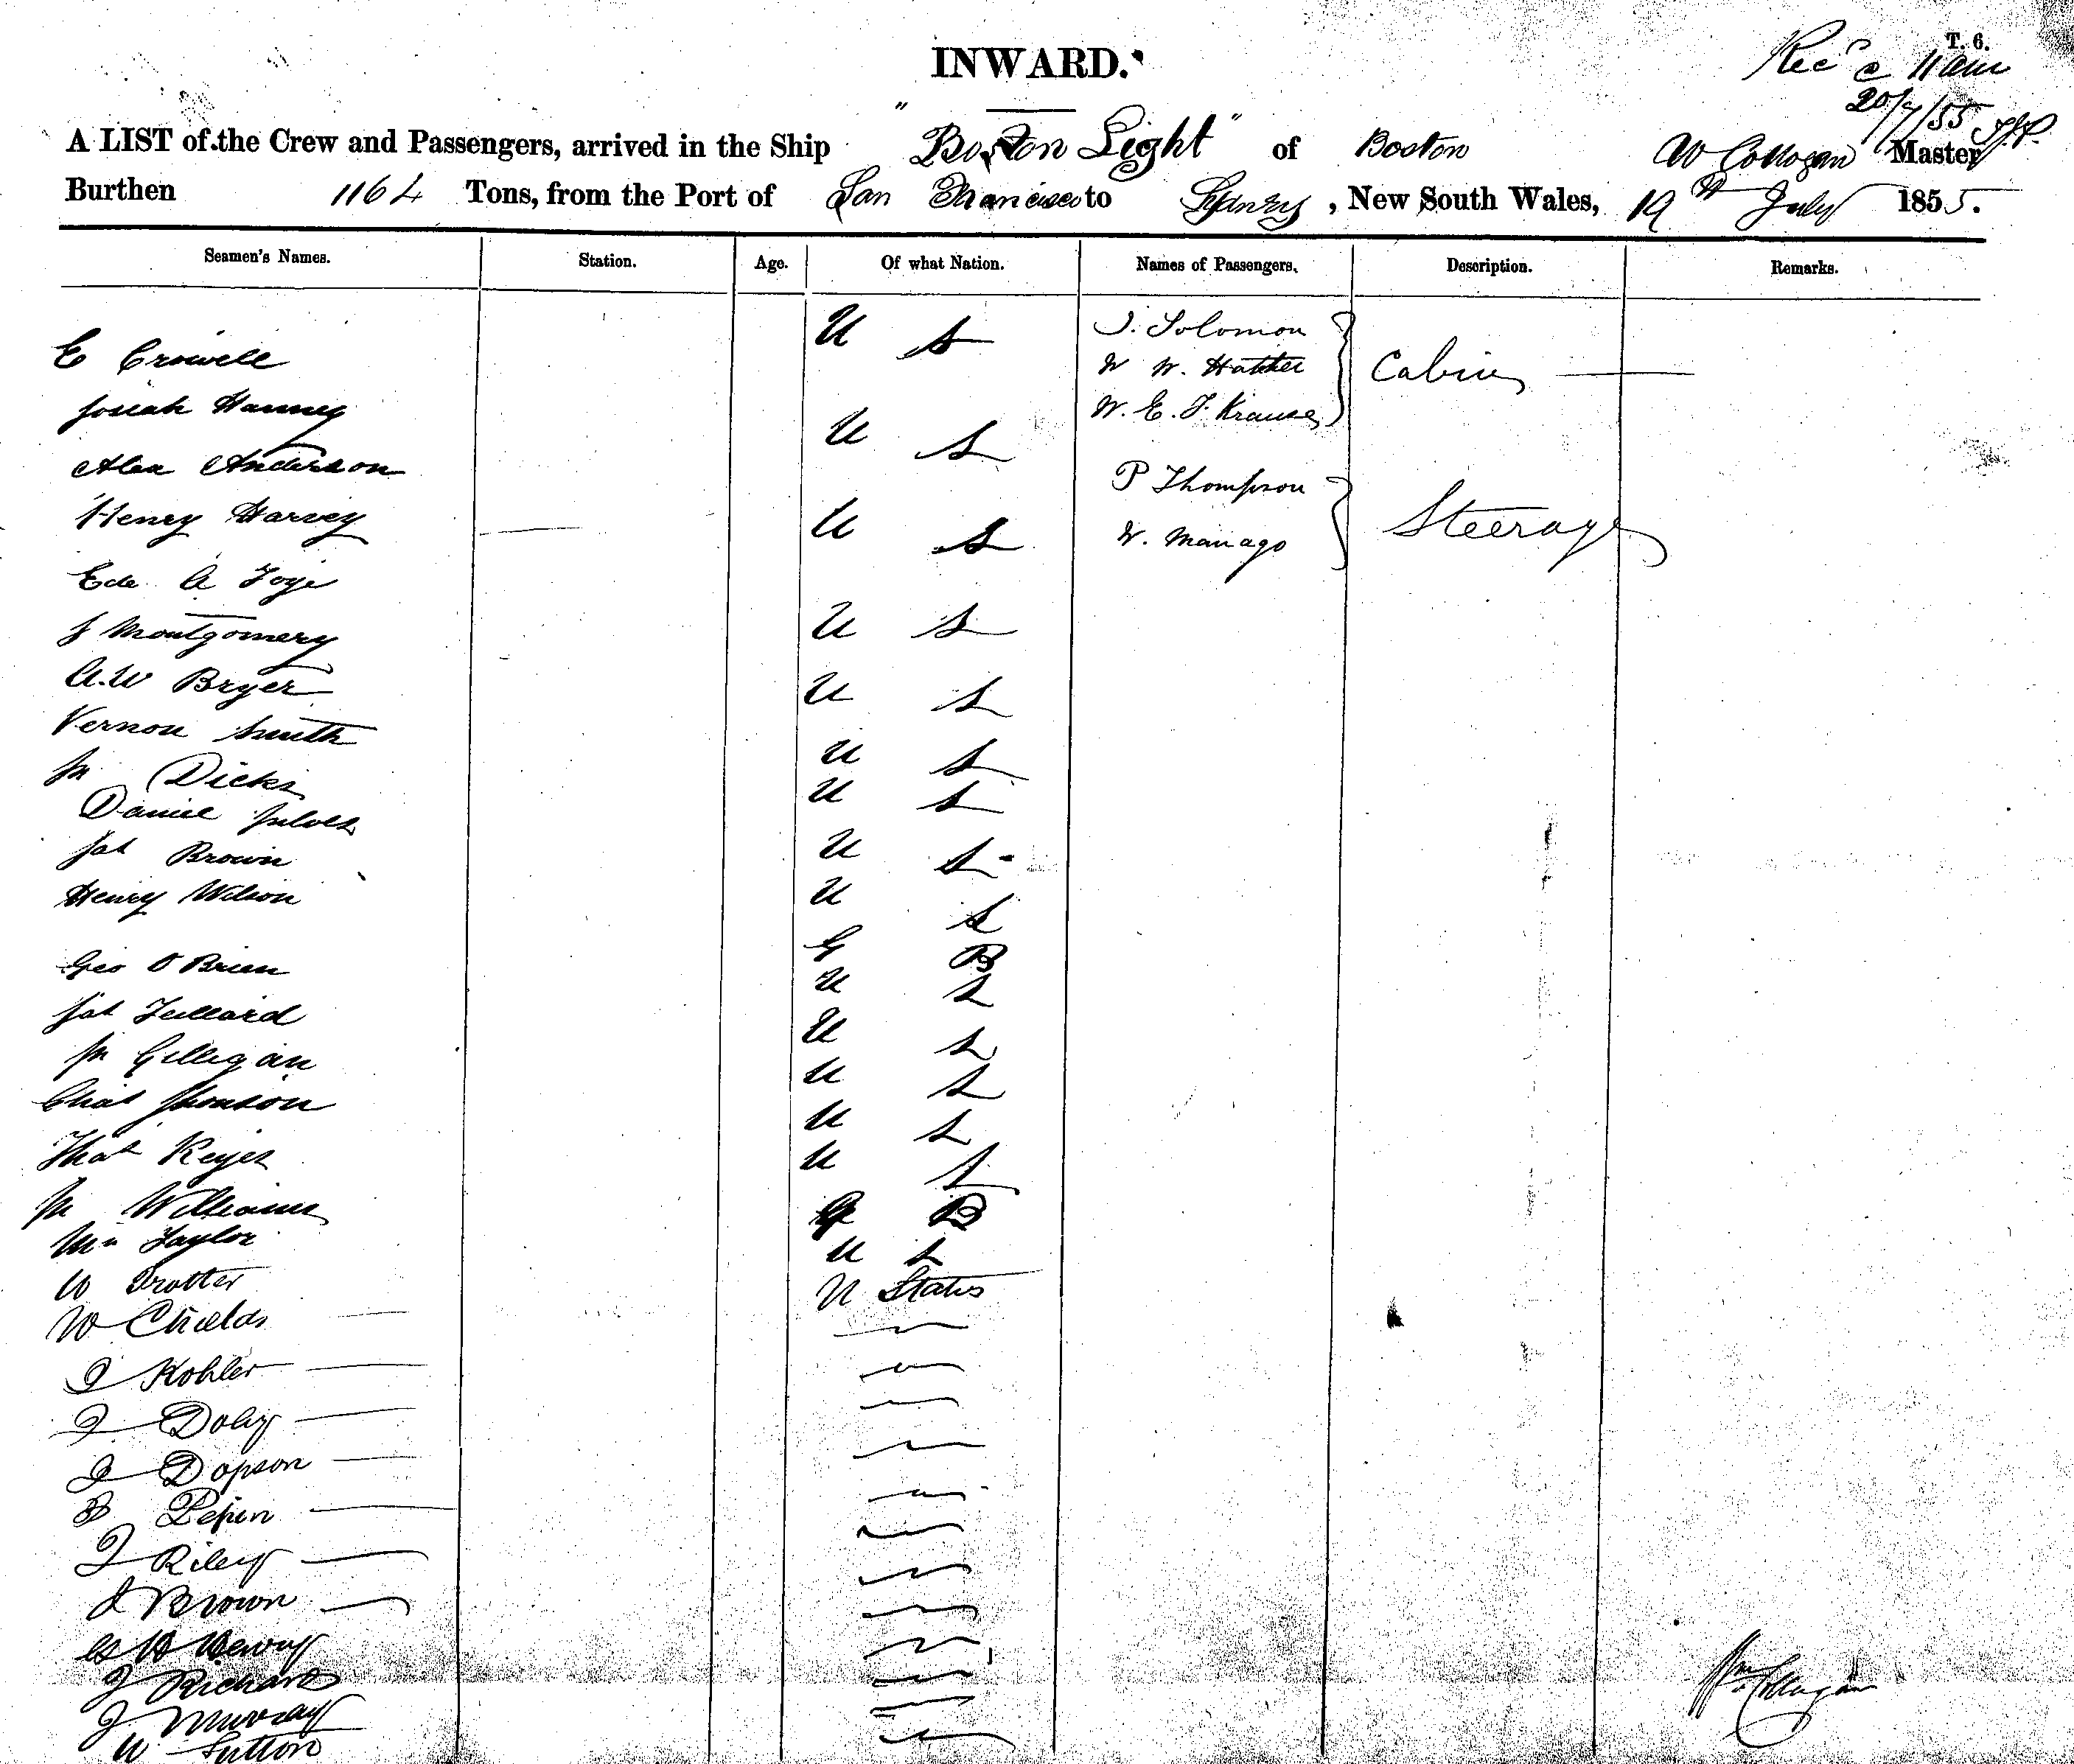 INWARD.
T. 6.
Rec^d @ 11 am
20/7/55
A LIST of the Crew and Passengers, arrived in the Ship "Boston Light" of Boston W Collogan Master
Burthen 1164 Tons, from the Port of San Francisco to Sydney, New South Wales, 19th July 1855.
Seamen's Names. Station. Age. Of what Nation. Names of Passengers. Description. Remarks.
E Crowell U S J. Solomon
W W. Hather Cabin
Josiah Hanney U S W. E. F. Krause
Alex Anderson P Thompson
Henry Harvey U S W. Manago Steerage
A Foye
J Montgomery U S
A. W Bryer U S
Vernon Smith U S
Jn Dicks U S
Daniel U S
Jas Brown U S
Henry Wilson G B
Geo O Brien U S
Jas U S
Jn Gilligan U S
Chas Jhonson U S
Thos Keyes U S
Jn Williams G B
Wm Taylor U S
W Trotter U States
W Childs
J Kohler
J Doby
J Dopson
B Pepin
J Riley
J Brown
J Richards
J Murray
W Sutton
Wm Collogan